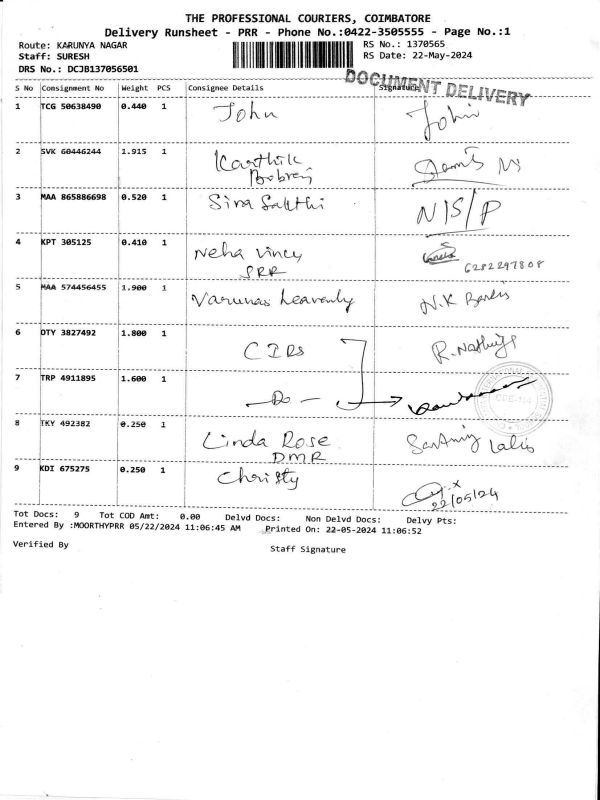 THE PROFESSIONAL COURIERS, COIMBATORE
Delivery Runsheet - PRR - Phone No.:0422-3505555 - Page No.:1
Route: KARUNYA NAGAR
RS No.: 1370565
Staff: SURESH
RS Date: 22-May-2024
DRS No.: DCJB137056501
DOCUMENT DELIVERY
S No Consignment No Weight PCS Consignee Details Signature
1 TCG 50638490 0.440 1 John John
2 SVK 60446244 1.915 1 Karthik
3 MAA 865886698 0.520 1 Siva Sakthi N/S/P
4 KPT 305125 0.410 1 Neha Vincy
SRR 6282297808
5 MAA 574456455 1.900 1 Varunas heavenly N.K
6 OTY 3827492 1.800 1 CIRS
7 TRP 4911895 1.600 1 -Do-
8 TKY 492382 0.250 1 Linda Rose
DMR
9 KDI 675275 0.250 1 Christy
22/05/24
Tot Docs: 9 Tot COD Amt: 0.00 Delvd Docs: Non Delvd Docs: Delvy Pts:
Entered By :MOORTHYPRR 05/22/2024 11:06:45 AM Printed On: 22-05-2024 11:06:52
Verified By
Staff Signature